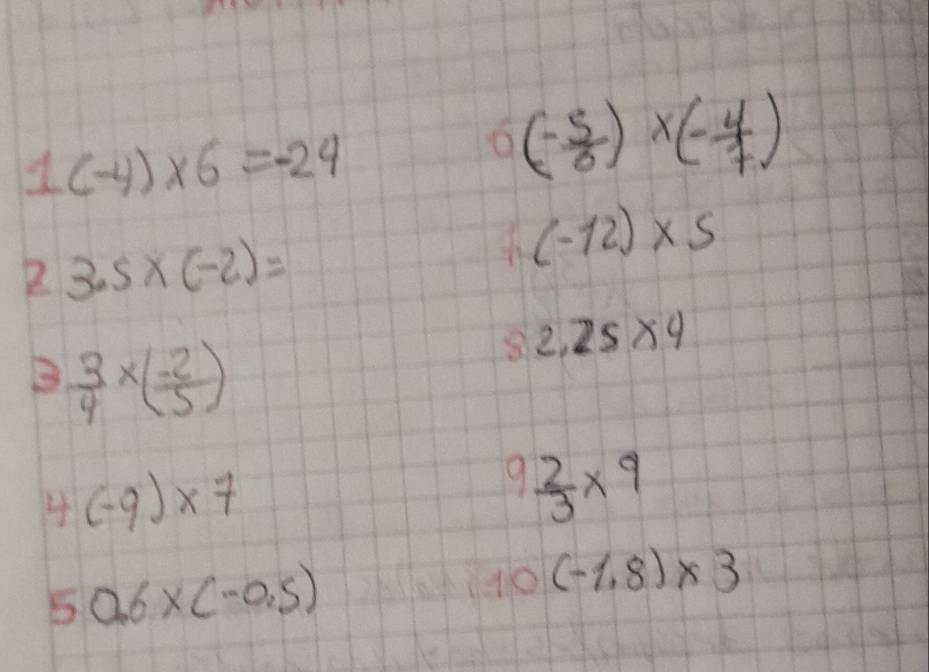 1 (-4) × 6 = -24
2 3.5 × (-2) =
3 3/4 × (-2/5)
4 (-9) × 7
5 0.6 × (-0.5)
6 (-5/6) × (-4/7)
7 (-12) × 5
8 2.25 × 4
9 2/3 × 9
10 (-1.8) × 3